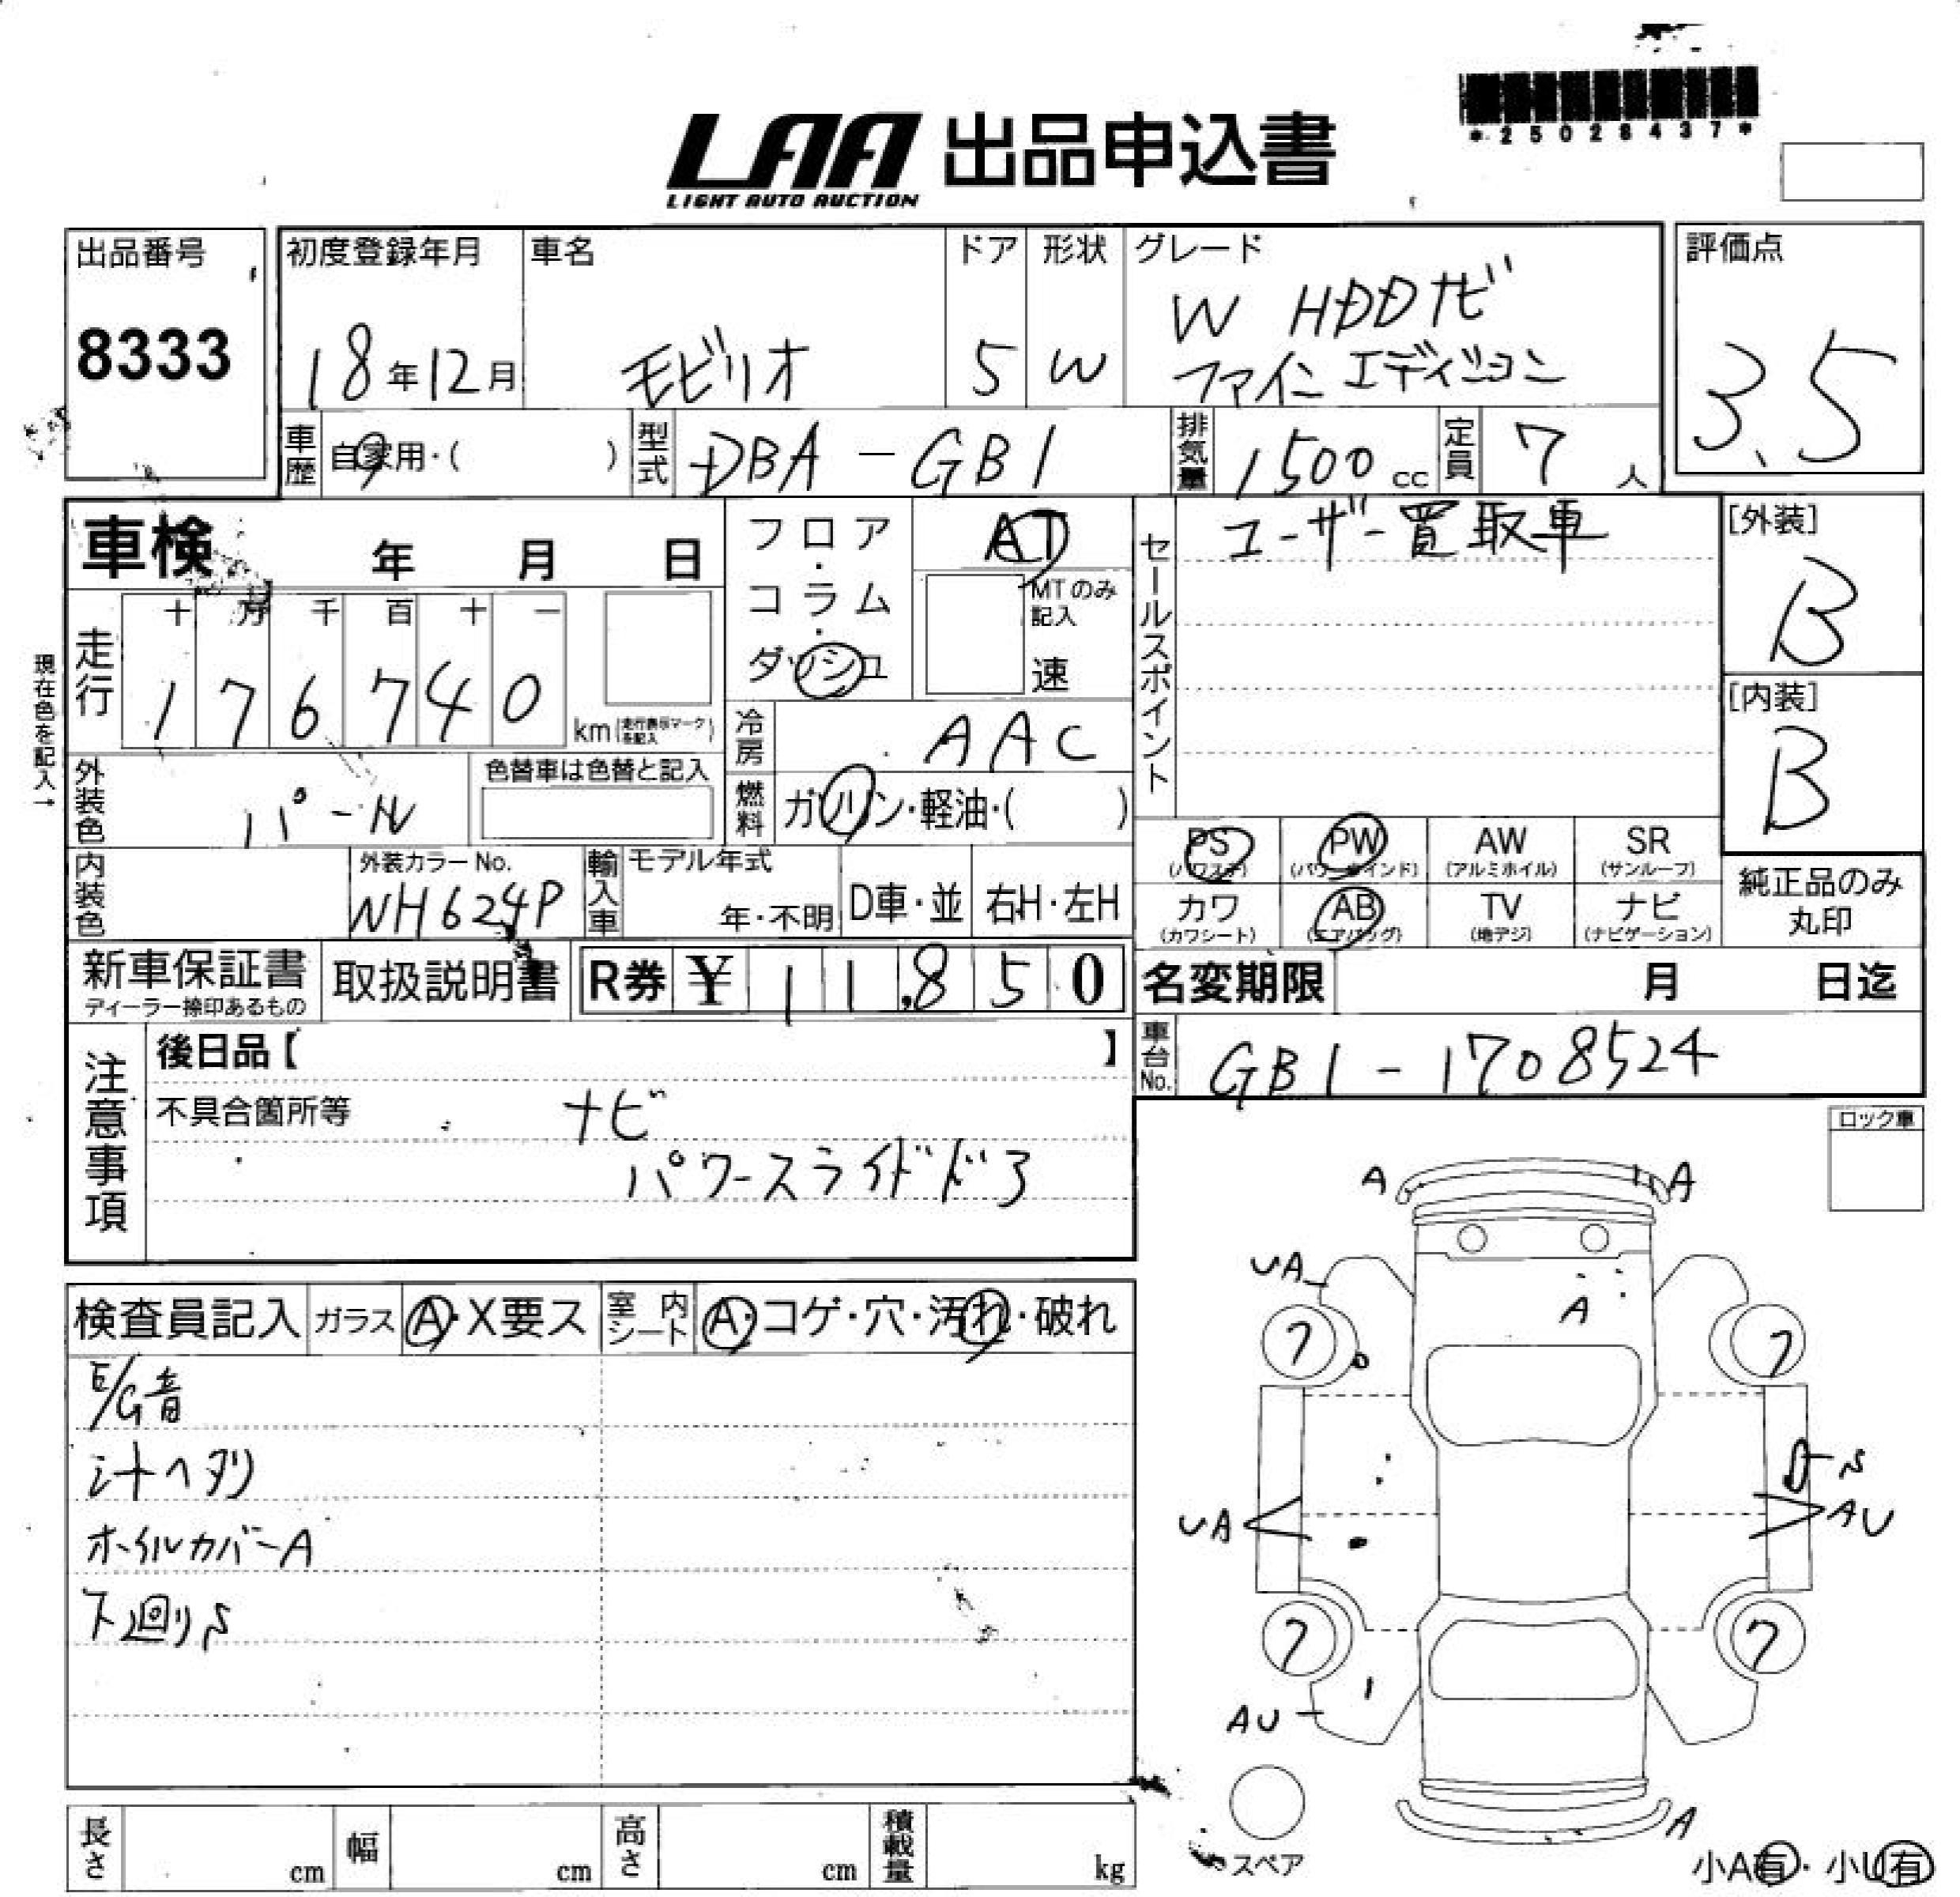 *25028437*
LAA 出品申込書
LIGHT AUTO AUCTION
出品番号
8333
初度登録年月
18年12月
車名
モビリオ
ドア
5
形状
W
グレード
W HDDナビ
ファインエディション
評価点
3.5
車歴 自家用・( )
型式 DBA-GB1
排気量 1500cc
定員 7人
車検 年 月 日
フロア・コラム・ダッシュ
AT
MTのみ記入
速
セールスポイント
ユーザー買取車
[外装]
B
[内装]
B
現在色を記入→
走行
十 万 千 百 十 一
176740
km(走行表示マークを記入)
冷房 AAC
燃料 ガソリン・軽油・( )
外装色 パール
色替車は色替と記入
内装色
外装カラーNo.
NH624P
輸入車
モデル年式
年・不明
D車・並
右H・左H
PS (パワステ)
PW (パワーウインド)
AW (アルミホイル)
SR (サンルーフ)
カワ (カワシート)
AB (エアバッグ)
TV (地デジ)
ナビ (ナビゲーション)
純正品のみ
丸印
新車保証書
ディーラー捺印あるもの
取扱説明書
R券 ¥11,850
名変期限 月 日迄
車台No. GB1-1708524
注意事項
後日品【 】
不具合箇所等 ナビ
パワースライドドア
ロック車
検査員記入
ガラス A・X要ス
室内シート A・コゲ・穴・汚れ・破れ
E/G音
シートヘタリ
ホイルカバーA
下廻りS
A A
UA
A
7 7
S
UA AU
7 7
AU
A
スペア
小A有・小U有
長さ cm
幅 cm
高さ cm
積載量 kg